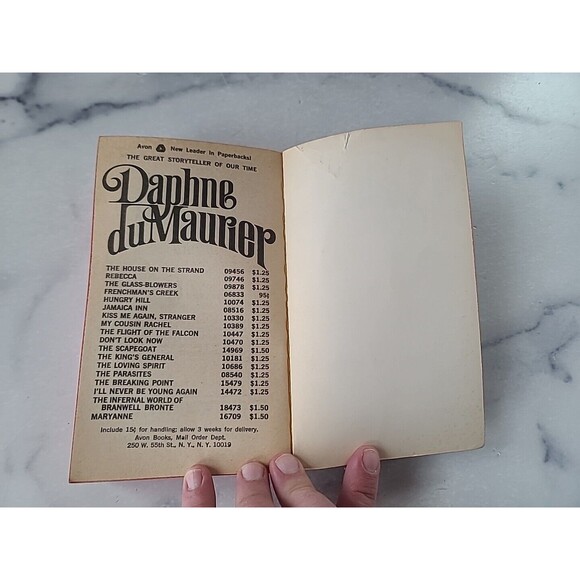 Avon New Leader in Paperbacks!
THE GREAT STORYTELLER OF OUR TIME
Daphne
du Maurier
THE HOUSE ON THE STRAND 09456 $1.25
REBECCA 09746 $1.25
THE GLASS-BLOWERS 09878 $1.25
FRENCHMAN'S CREEK 06833 95¢
HUNGRY HILL 10074 $1.25
JAMAICA INN 08516 $1.25
KISS ME AGAIN, STRANGER 10330 $1.25
MY COUSIN RACHEL 10389 $1.25
THE FLIGHT OF THE FALCON 10447 $1.25
DON'T LOOK NOW 10470 $1.25
THE SCAPEGOAT 14969 $1.50
THE KING'S GENERAL 10181 $1.25
THE LOVING SPIRIT 10686 $1.25
THE PARASITES 08540 $1.25
THE BREAKING POINT 15479 $1.25
I'LL NEVER BE YOUNG AGAIN 14472 $1.25
THE INFERNAL WORLD OF
BRANWELL BRONTE 18473 $1.50
MARYANNE 16709 $1.50
Include 15¢ for handling; allow 3 weeks for delivery.
Avon Books, Mail Order Dept.
250 W. 55th St., N. Y., N. Y. 10019